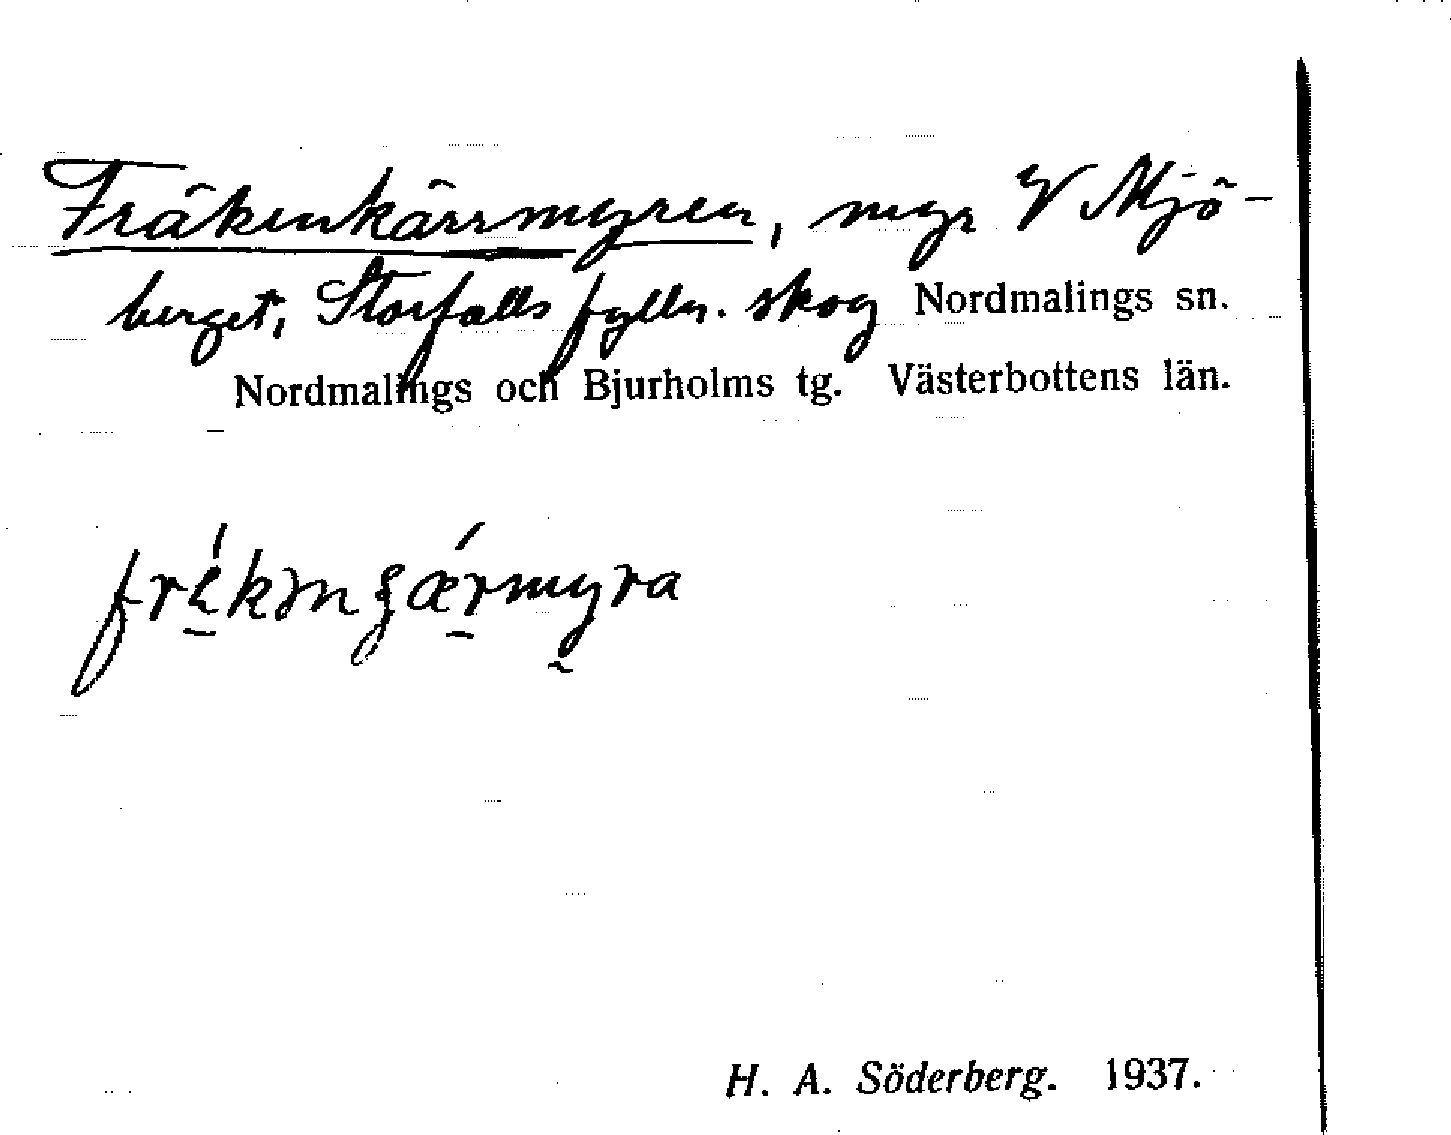 Fräkenkärrmyren, myr V Mjö-
berget, Storfalls fylln. skog Nordmalings sn.
Nordmalings och Bjurholms tg. Västerbottens län.
H. A. Söderberg. 1937.